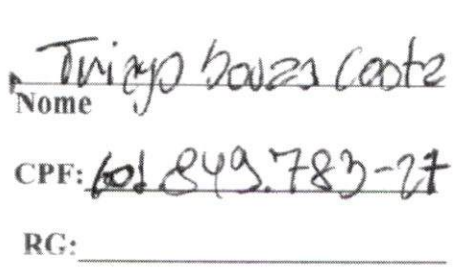 Thiago Souza Costa
Nome
CPF: 601.849.783-27
RG: